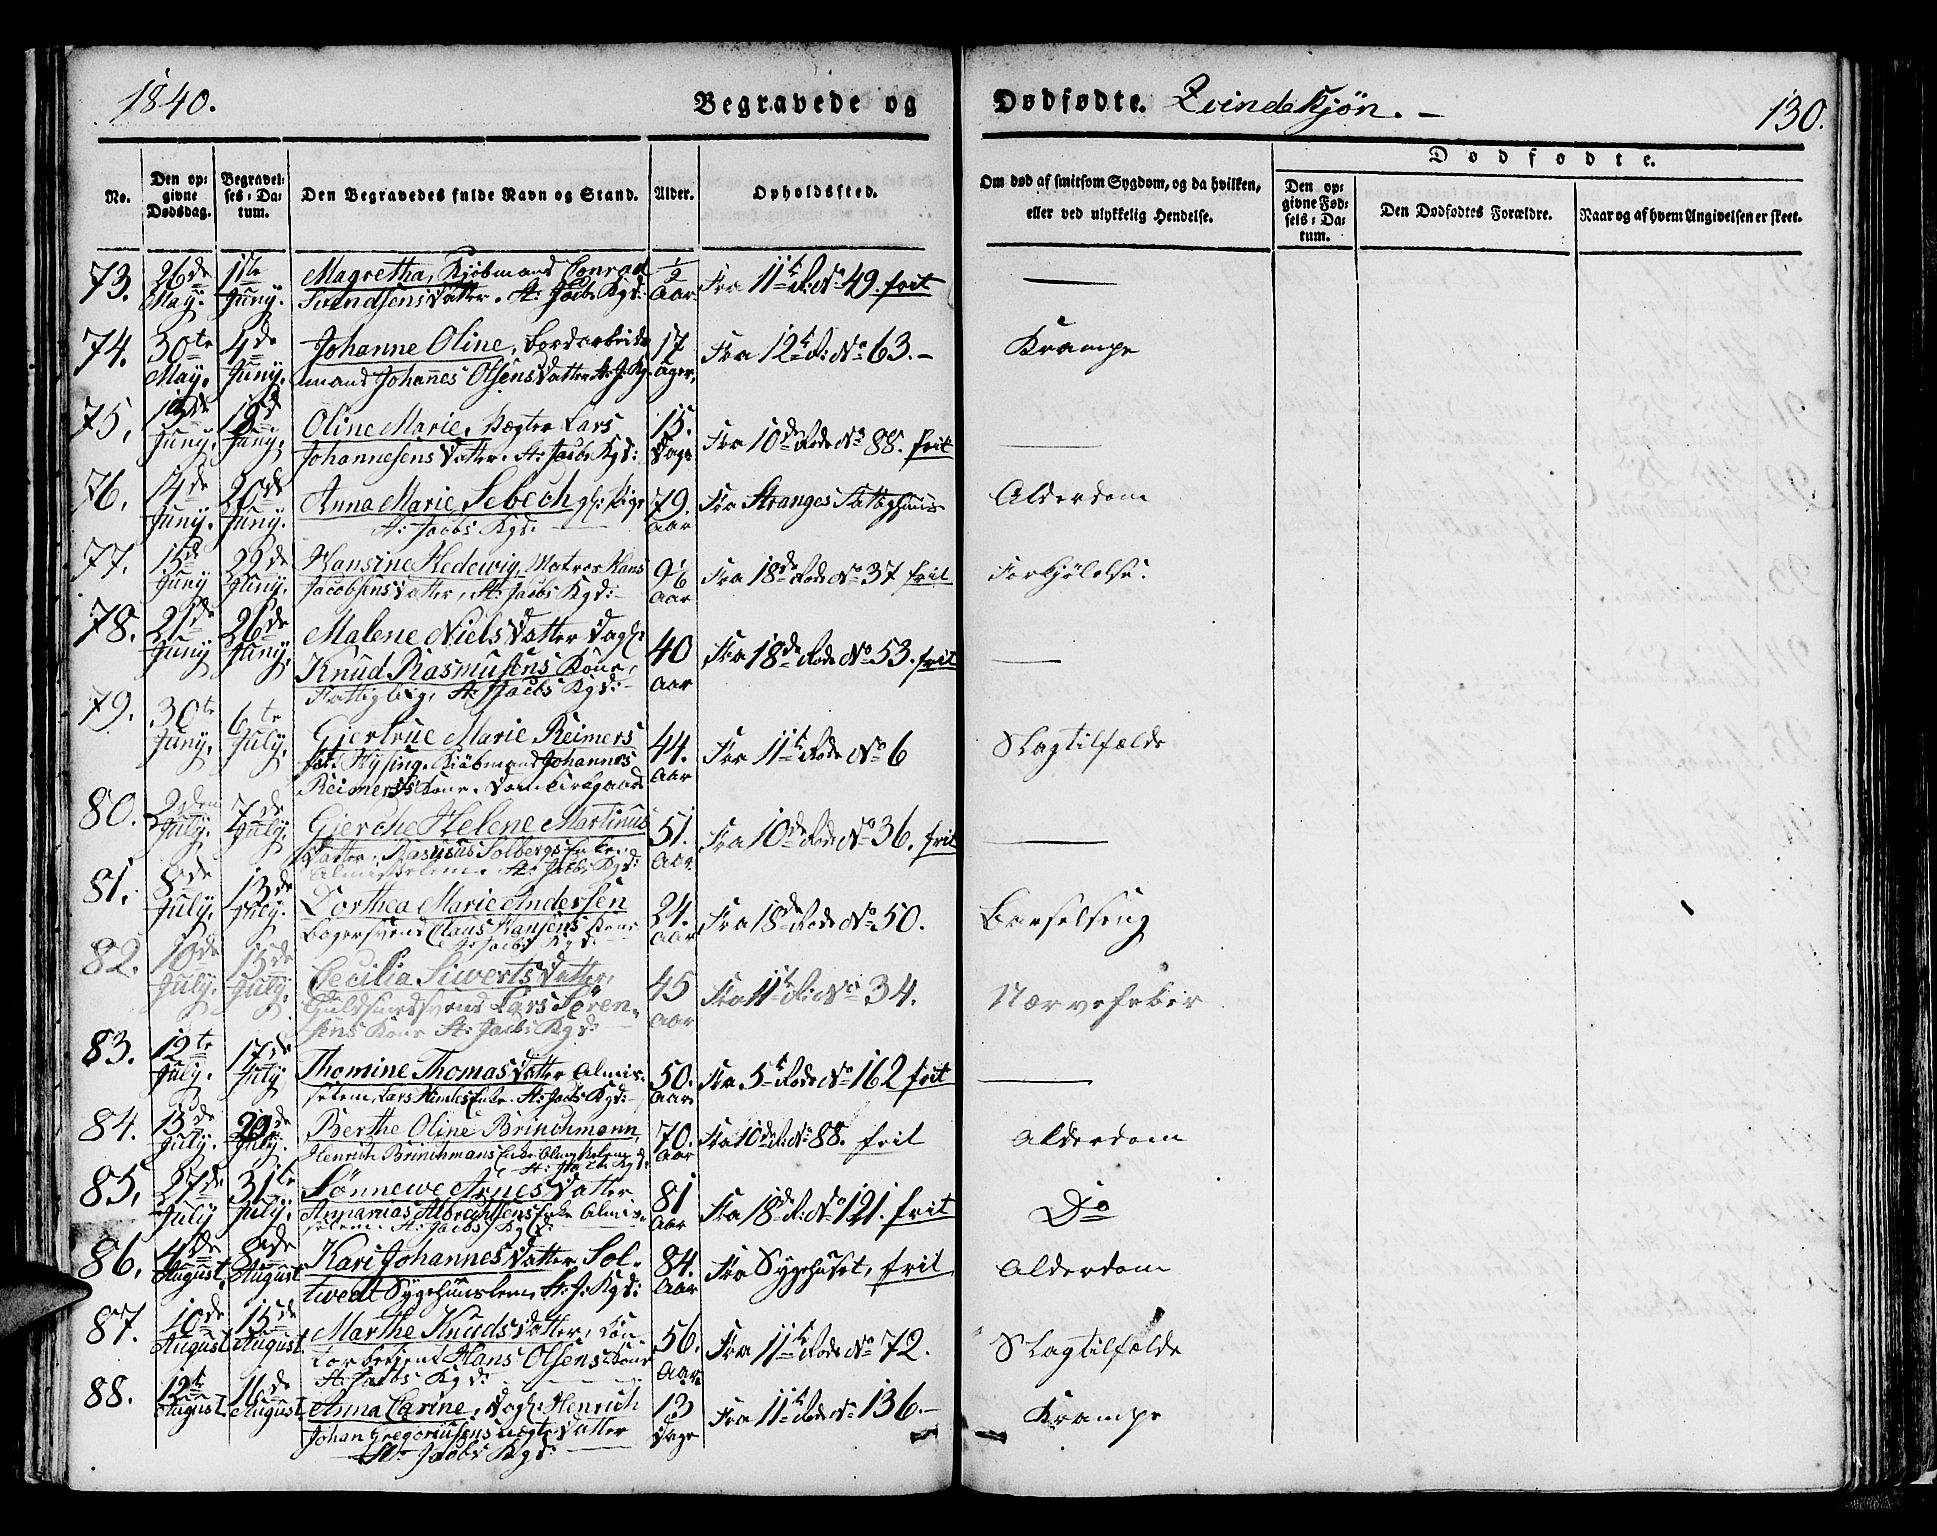 1840.
Begravede og
Dødfødte. Qvindekjøn. –
130.
No.
Den opgivne Dødsdag.
Begravelses-Datum.
Den Begravedes fulde Navn og Stand.
Alder.
Opholdssted.
Om død af smitsom Sygdom, og da hvilken,
eller ved ulykkelig Hendelse.
Dødfødte.
Den opgivne Fødsels-Datum.
Den Dødfødtes Forældre.
Naar og af hvem Angivelsen er skeet.
73. 26de May. 1ste Juny. Magretha, Kjøbmand Conrad
Svendsens Datter. St: Jacbs Kgd: 1/2 Aar Fra 11te R: No 49. frit
74. 30te May. 4de Juny. Johanne Oline, Bordarbeids
mand Johannes Olsens Datter St. J. Kg. 17 Dager, Fra 12te R: No 63. – Krampe
75, Juny, Juny, Oline Marie, Lars
Johannesens Datter. St: Jacbs Kgd: 15. Dage Fra 10de Rode No 88. frit
76. 14de Juny. 20de Juny. Anna Marie Sebech gl: Pige
St: Jacbs Kgd: 79. Aar Fra Stranges Fattighuus Alderdom
77. 15de Juny 22de Juny. Hansine Hedewig, Matros Hans
Jacobsens Datter, St: Jacbs Kgd: Aar Fra 18de Rode No 37 frit Forkjølelse.
78. 21de Juny 26de Juny, Malene Niels Datter Dagl:
Knud Rasmusens Kone,
Fattiglig, St: Jacbs Kgd: 40 Aar Fra 18de Rode No 53. frit
79. 30te Juny, 6te July, Gjertrue Marie Reimers
fød Hysing. Kiøbmand Johannes
Reimers's Kone. Domkirkgaard 44. Aar Fra 11te Rode No 6 Slagtilfælde
80. 2den July, 7de July. Gjerche Helene Martinus
Datter, Rasmus Solbergs Enke,
Almisselem. St: Jacbs Kgd: 51. Aar Fra 10de Rode No 36. frit
81. 8de July, 13de July. Dorthea Marie Andersen
Bagersvend Claus Hansens Kone
St: Jacbs Kgd: 24. Aar Fra 18de Rode No 50. Barselseng
82. 10de July, 15de July, Cecilia Siwerts Datter,
Guldsmedsvend Lars Søren-
sens Kone St: Jacbs Kgd: 45 Aar Fra 11te R: No 34. Nærvefeber
83. 12te July. 17de July Thomine Thomas Datter Almis-
selem, Lars Enke. St: Jacbs Kgd: 50. Aar Fra 5te Rode No 162 frit
84. 13de July. 20de July. Berthe Oline Brinchmann,
Henrich Brinchmans Enke Almisselem
St: Jacb: Kgd: 70. Aar Fra 10de R: No 88. frit Alderdom
85, 27de July 31te July. Sønnewe Arnes Datter
Albrechtsens Enke Almis-
selem. St: Jacbs Kgd: 81 Aar Fra 18de R: No 121. frit Do
86, 4de August, 8de August Kari Johannes Datter Sol-
twedt Sygehuuslem, St. J. Kgd: 84. Aar Fra Sygehuset, frit Alderdom
87. 10de August, 15de August Marthe Knuds Datter, Con-
torbetjent Hans Olsens Kone
St: Jacbs Kgd: 56. Aar Fra 11te Rode No 72. Slagtilfælde
88. 12te August, 16de August Anna Carine, Dagl: Henrich
Johan Gregoriusens uægte Datter
St: Jacobs Kgd: 13 Dage Fra 11te Rode No 136. – Krampe